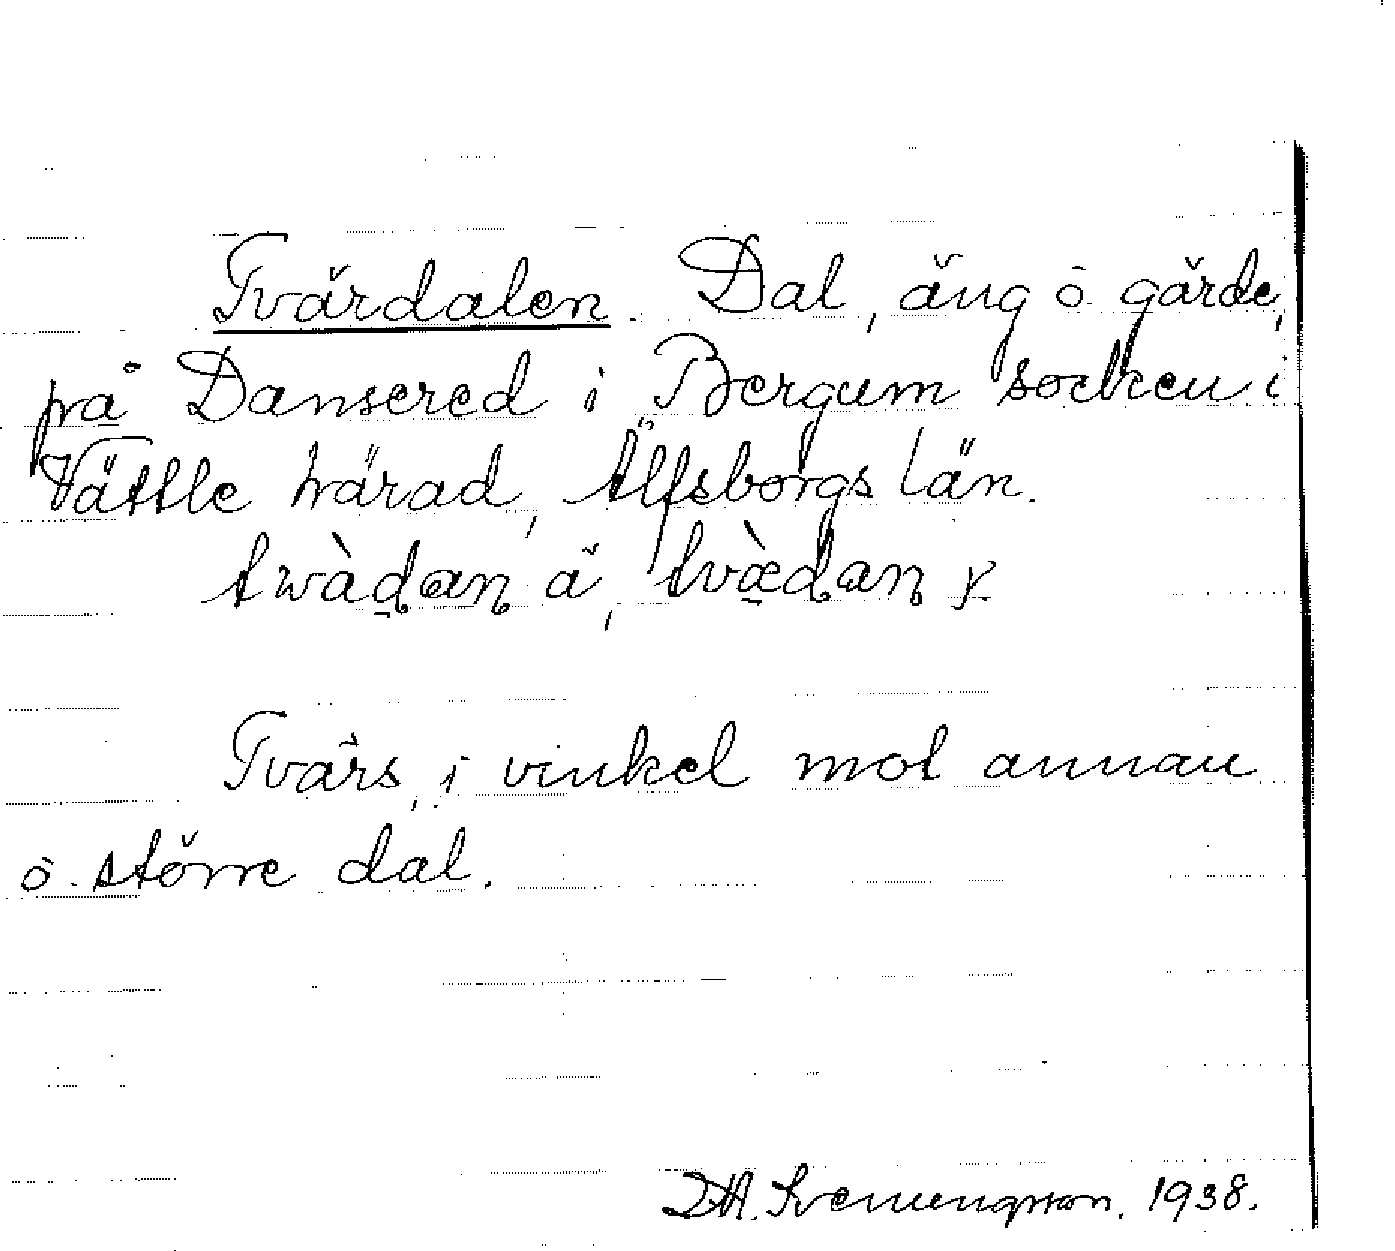 Tvärdalen. Dal, äng o. gärde,
på Dansered i Bergum socken i
Vättle härad, Älfsborgs län.
twàdan ä, tvæ̀dan y.
Tvärs, i vinkel mot annan
o. större dal.
1938.